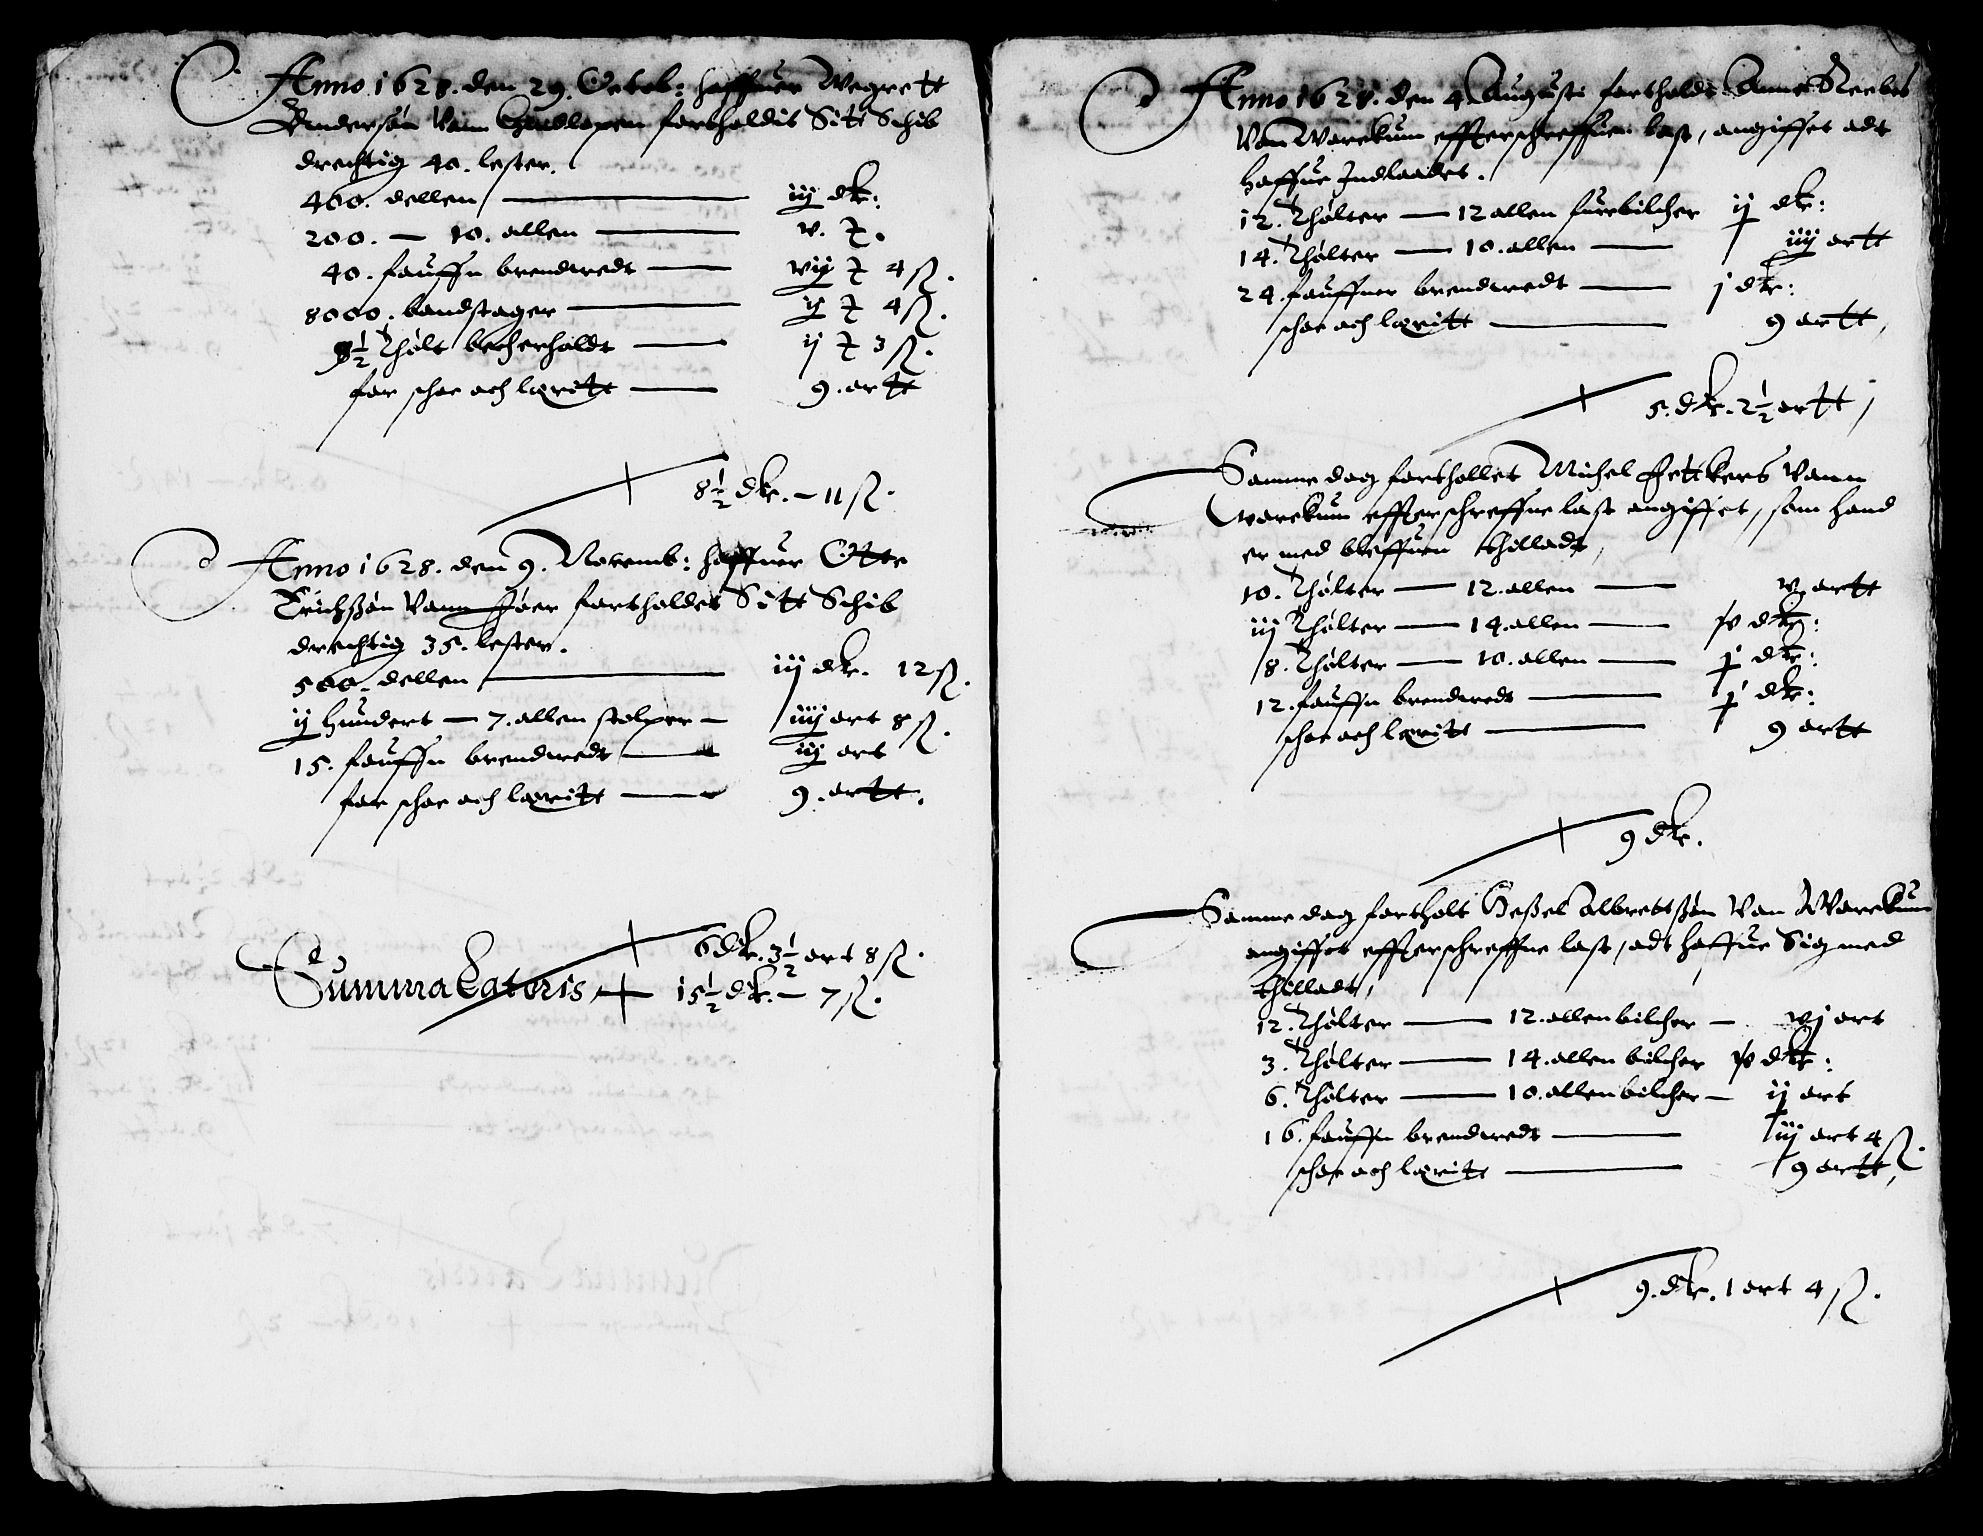 Anno 1628. den 29. Octob: haffuer Wegrett
Andersøn Vann fortholdit Sitt Schib
drechtig 40. lester.
400. dellen — iij dlr:
200. — 10. allen — v. ℔.
40. fauffn brendwedt — vij ℔ 4 ß.
8000. bandstager — ij ℔ 4 ß.
9½ Thølt becherholdt — ij ℔ 3 ß.
for schoe och lægritt — 9. ortt
8½ dlr. — 11 ß.
Anno 1628. den 9. Novemb: haffuer Otte
Erichsøn Vann fortholdet Sitt Schib
drechtig 35. lester.
500. dellen — iij dlr. 12 ß.
ij hundert — 7. allen stolper — iiij ort 8 ß.
15. fauffn brendwedt — iij ort
for schoe och lægritt — 9. ortt.
6 dlr. 3½ ort 8 ß.
Summa Lateris + 15½ dlr. — 7 ß.
Anno 1628. den 4. Augusti fortholdt Anne Reebes
Van Warckum effterschreffuen last, angiffet adt
haffue Indlaadet.
12. Thølter — 12 allen furebilcher ij dlr:
14. Thølter — 10. allen — iiij ortt
24. fauffner brendwedt — j dlr:
schoe och lægritt — 9 ortt,
5. dlr. 2½ ortt,
Samme dag fortholtet Michel Vann
Warckum effterschreffne last angiffet, som hand
er med bleffuen thilladt,
10. Thølter — 12. allen — v. ortt
iij Thølter — 14. allen — dlr:
8. Thølter — 10. allen — j dlr:
12. fauffn brendwedt — j dlr:
schoe och lægritt — 9 ortt
9 dlr.
Samme dag fortholt Albrettsøn Van Warckum
angiffet effterschreffne last, adt haffue Sig med
thilladt,
12. Thølter — 12. allen bilcher — vj ort
3. Thølter — 14. allen bilcher dlr:
6. Thølter — 10. allen bilcher — ij ort
16. fauffn brendwedt — iij ort 4 ß.
schoe och lægritt — 9 ortt,
9. dlr. 1 ort 4 ß.